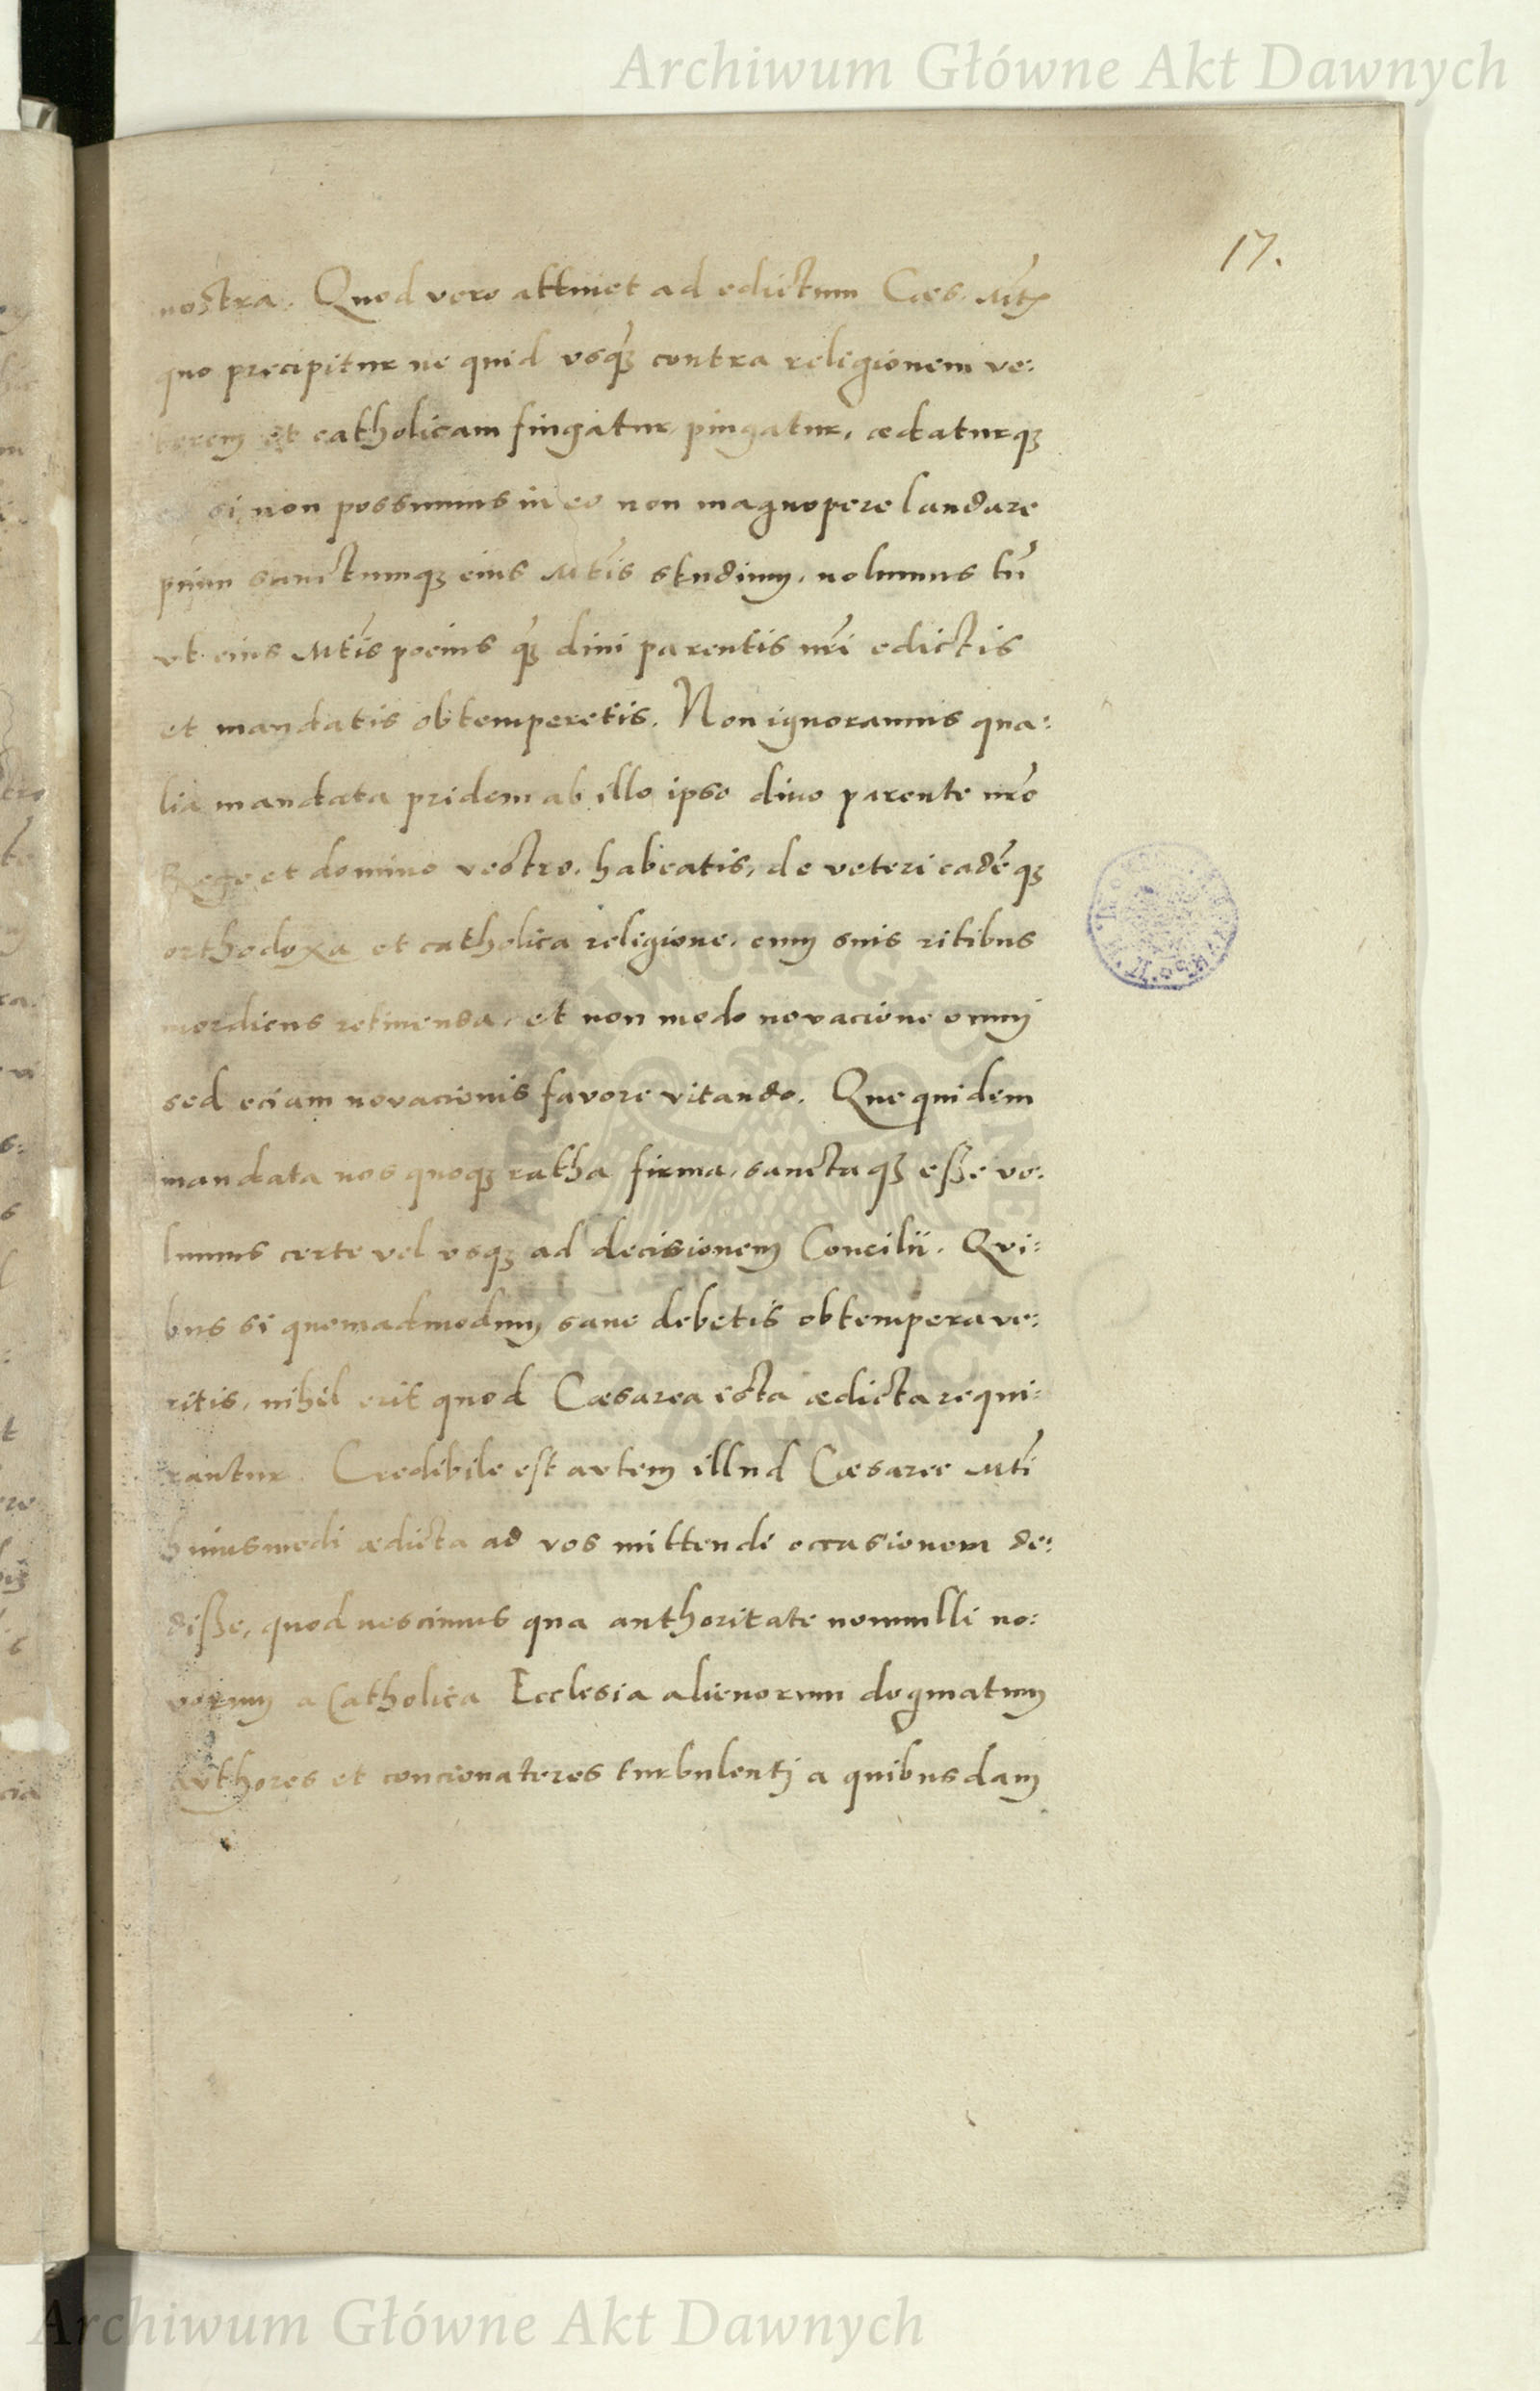 Archiwum Główne Akt Dawnych
17.
nostra. Quod vero attinet ad edictum Cæs. Mtis
quo precipitur ne quid usqȝ contra religionem ve:
terem et catholicam fingatur pingatur, ædaturqȝ
si non possumus in eo non magnopere laudare
pium sanctumqȝ eius Mtis studium, nolumus tñ
ut eius Mtis pocius qȝ divi parentis nri edictis
et mandatis obtemperetis. Non ignoramus qua:
lia mandata pridem ab illo ipso divo parente nro
Rege et domino vestro, habeatis, de veteri eadēqȝ
orthodoxa et catholica religione, cum suis ritibus
mordicus retinenda, et non modo novacione omni
sed eciam novacionis favore vitando. Que quidem
mandata nos quoqȝ ratha firma, sanctaqȝ esse vo:
lumus certe vel usqȝ ad decisionem Concilii. Qvi:
bus si quemadmodum sane debetis obtemperave:
ritis, nihil erit quod Cæsarea ista ædicta requi:
rantur. Credibile est autem illud Cæsaree Mti
huiusmodi ædicta ad vos mittendi occasionem de:
disse, quod nescimus qua authoritate nonnulli no:
vorum a Catholica Ecclesia alienorum dogmatum
authores et concionatores turbulenti a quibusdam
ARCHIWUM GŁÓWNE
AKT DAWNYCH
Archiwum Główne Akt Dawnych